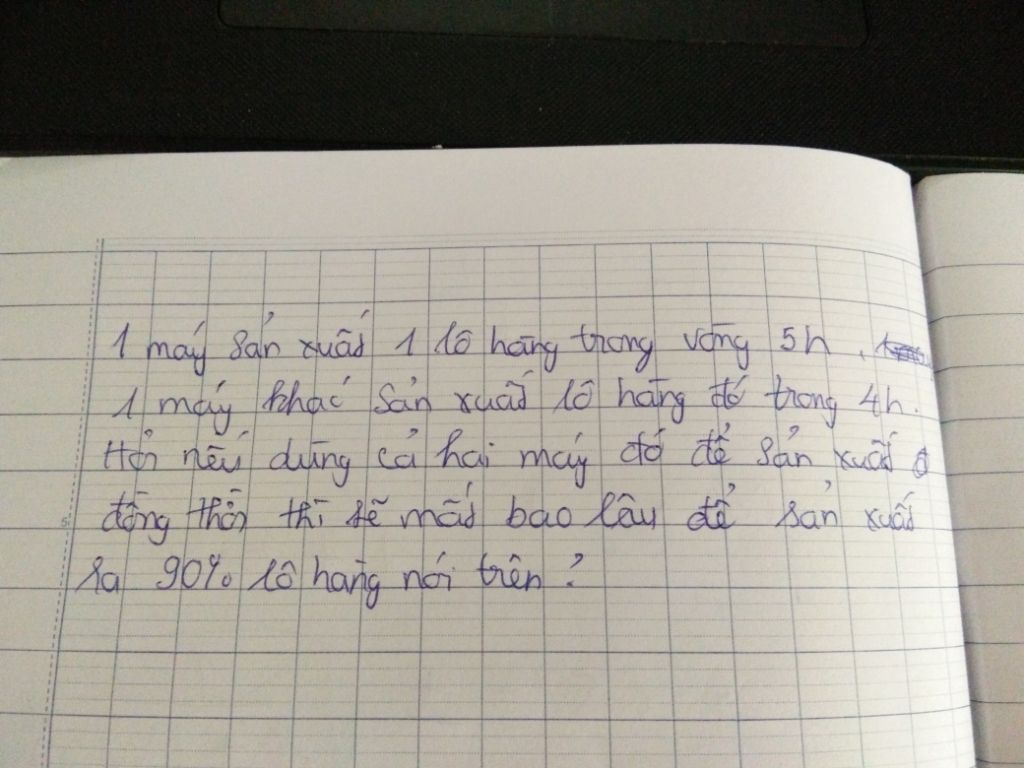 1 máy sản xuất 1 lô hàng trong vòng 5h.
1 máy khác sản xuất lô hàng đó trong 4h.
Hỏi nếu dùng cả hai máy đó để sản xuất
đồng thời thì sẽ mất bao lâu để sản xuất
ra 90% lô hàng nói trên?